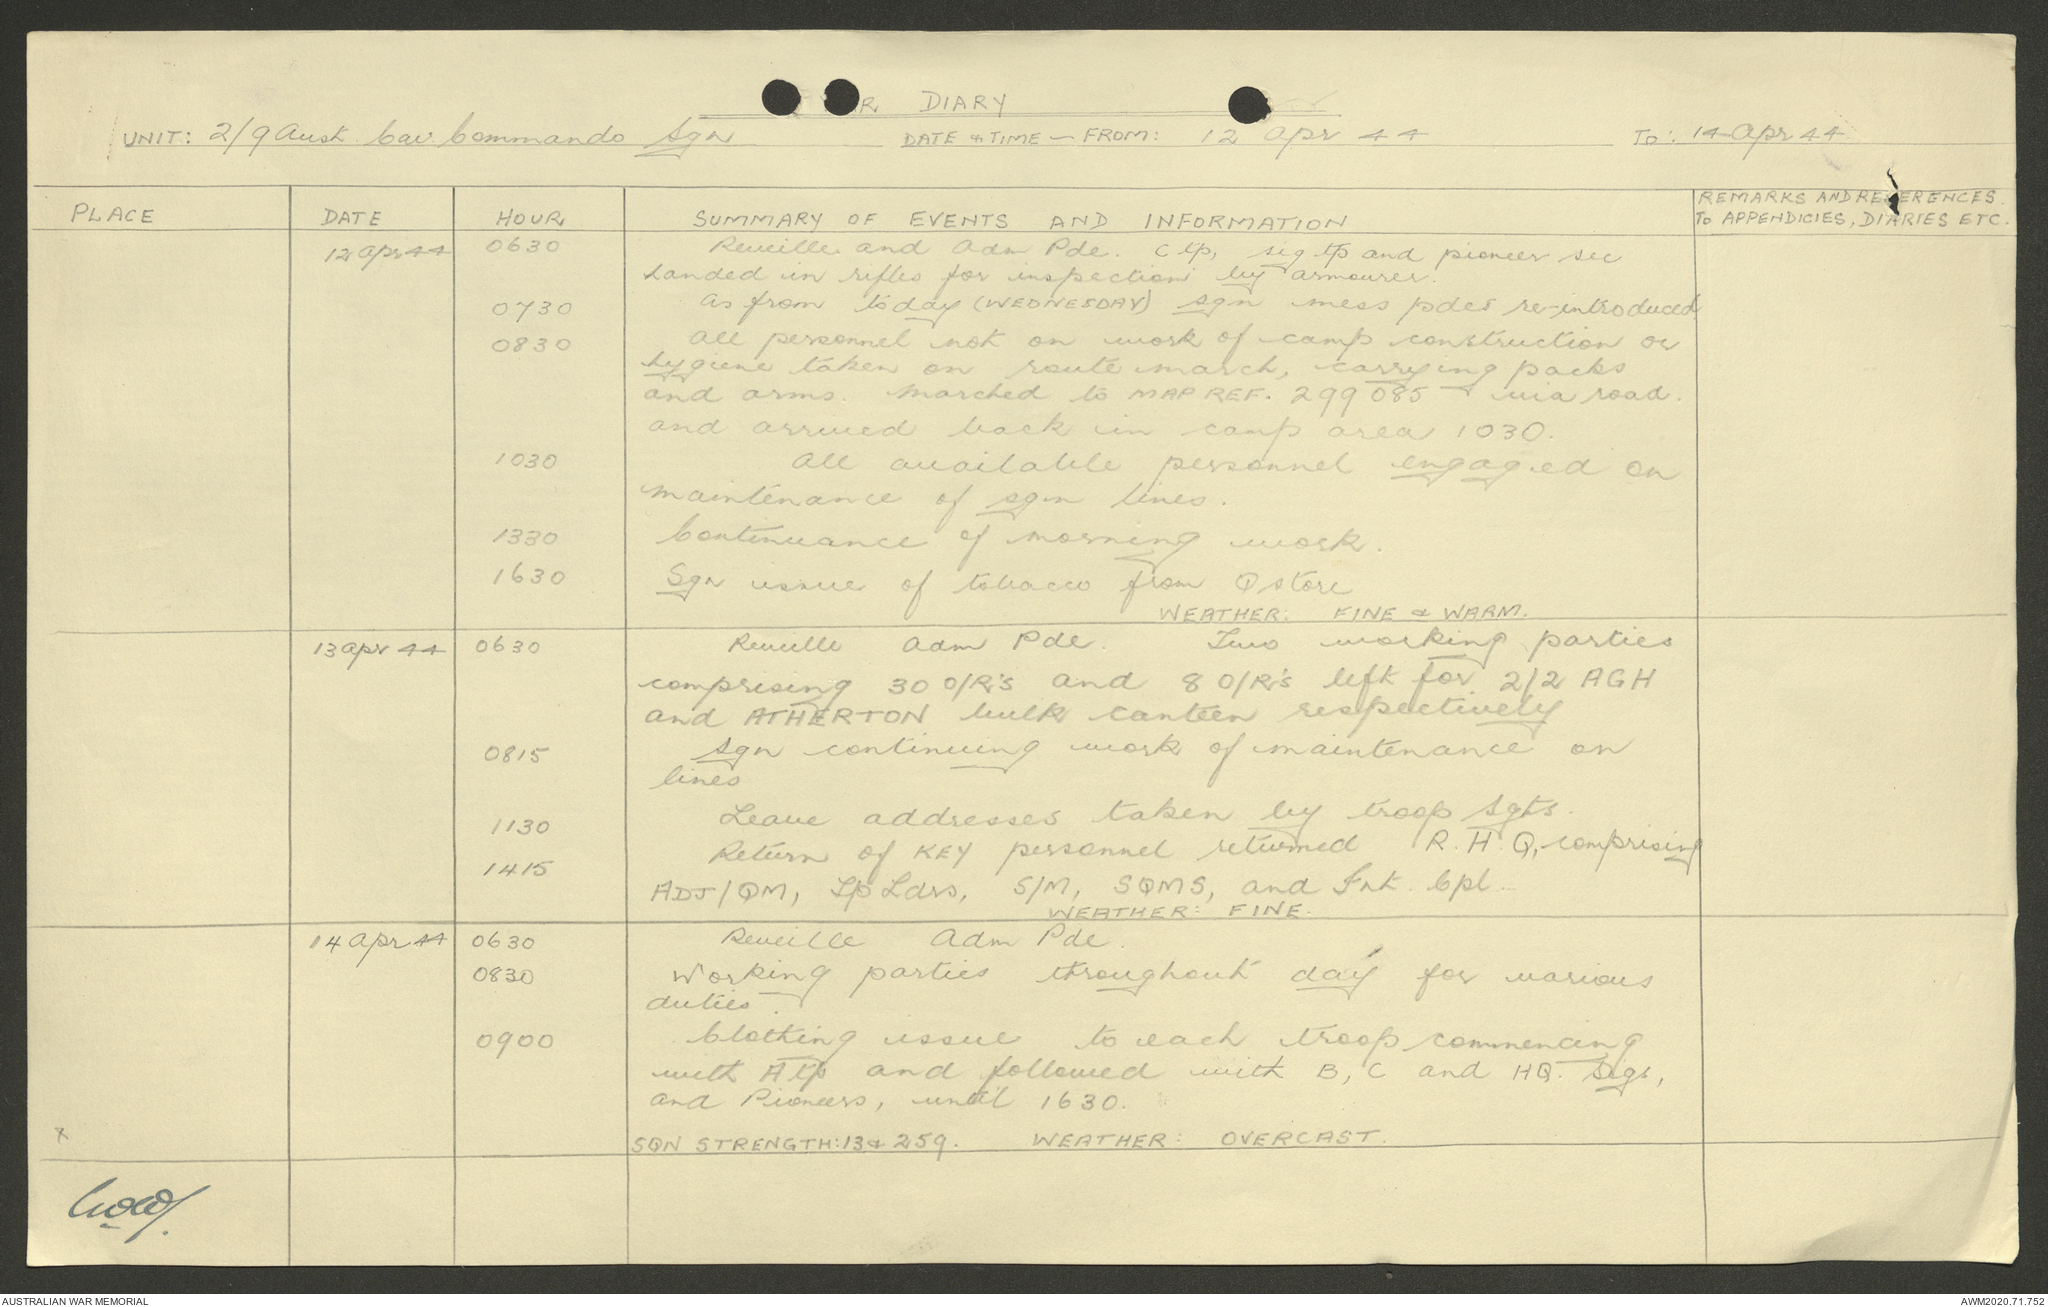 R DIARY
UNIT: 2/9 Aust. Cav. Commando Sqn DATE & TIME - FROM: 12 Apr 44 TO: 14 Apr 44
PLACE DATE HOUR SUMMARY OF EVENTS AND INFORMATION REMARKS AND REFERENCES
TO APPENDICIES, DIARIES ETC.
12 Apr 44 0630 Reveille and Adm Pde. C tp, sig tp and pioneer sec
handed in rifles for inspection by armourer.
0730 As from today (WEDNESDAY) sqn mess pdes re-introduced
0830 All personnel not on work of camp construction or
hygiene taken on route march, carrying packs
and arms. Marched to MAP REF. 299085 via road.
and arrived back in camp area 1030.
1030 All available personnel engaged on
maintenance of sqn lines.
1330 Continuance of morning work.
1630 Sqn issue of tobacco from Q store
WEATHER: FINE & WARM.
13 Apr 44 0630 Reveille Adm Pde. Two working parties
comprising 30 O/R's and 8 O/R's left for 2/2 AGH
and ATHERTON bulk canteen respectively
0815 Sqn continuing work of maintenance on
lines
1130 Leave addresses taken by troop Sgts.
1415 Return of KEY personnel returned R.H.Q, comprising
ADJ/QM, Tp Ldrs, S/M, SQMS, and Cpl.
WEATHER: FINE.
14 Apr 44 0630 Reveille Adm Pde.
0830 Working parties throughout day for various
duties.
0900 Clothing issue to each troop commencing
with A tp and followed with B, C and HQ. Sigs,
and Pioneers, until 1630.
x
SQN STRENGTH: 13 & 259. WEATHER: OVERCAST.
AUSTRALIAN WAR MEMORIAL AWM2020.71.752